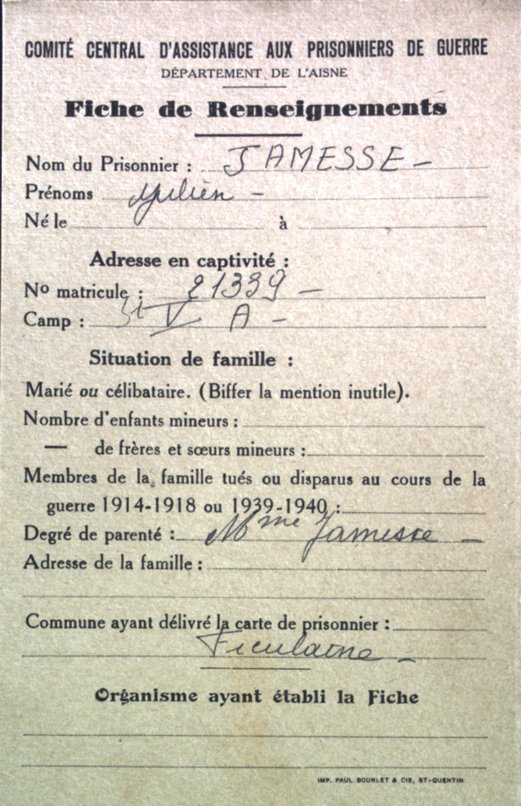 COMITÉ CENTRAL D'ASSISTANCE AUX PRISONNIERS DE GUERRE
DÉPARTEMENT DE L'AISNE
Fiche de Renseignements
Nom du Prisonnier : JAMESSE –
Prénoms Julien –
Né le à
Adresse en captivité :
No matricule : 21339 –
Camp : St V A –
Situation de famille :
Marié ou célibataire. (Biffer la mention inutile).
Nombre d'enfants mineurs :
— de frères et sœurs mineurs :
Membres de la famille tués ou disparus au cours de la
guerre 1914-1918 ou 1939-1940 :
Degré de parenté : Mme Jamesse –
Adresse de la famille :
Commune ayant délivré la carte de prisonnier :
Ficulaine –
Organisme ayant établi la Fiche
IMP. PAUL BOURLET & CIE, ST-QUENTIN